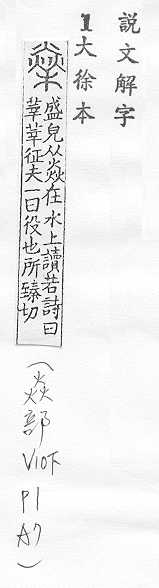 説文解字
1大徐本
燊 盛皃从焱在木上讀若詩曰
莘莘征夫一曰役也所臻切
(焱部 V10下 P1 A7)